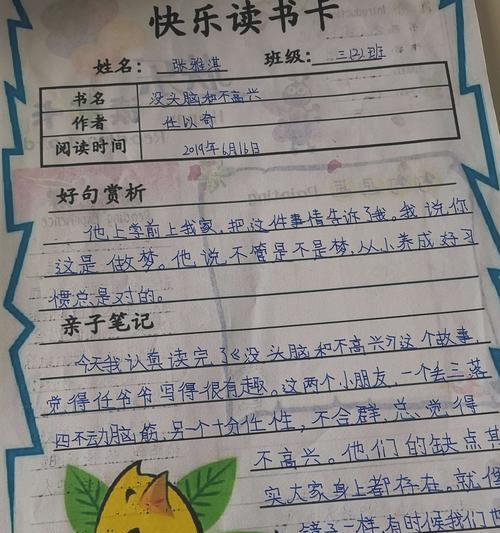 快乐读书卡
姓名：张雅淇 班级：三(2)班
书名 没头脑和不高兴
作者 任以奇
阅读时间 2019年6月16日
好句赏析
他上学前上我家，把这件事情告诉了我。我说，你
这是做梦。他说不管是不是梦，从小养成好习
惯总是对的。
亲子笔记
今天我认真读完了《没头脑和不高兴》这个故事
觉得任爷爷写得很有趣。这两个小朋友，一个丢三落
四不动脑筋，另一个十分任性，不合群，总觉得
不高兴。他们的缺点其
实大家身上都存在。就像
镜子一样，有时候我们也